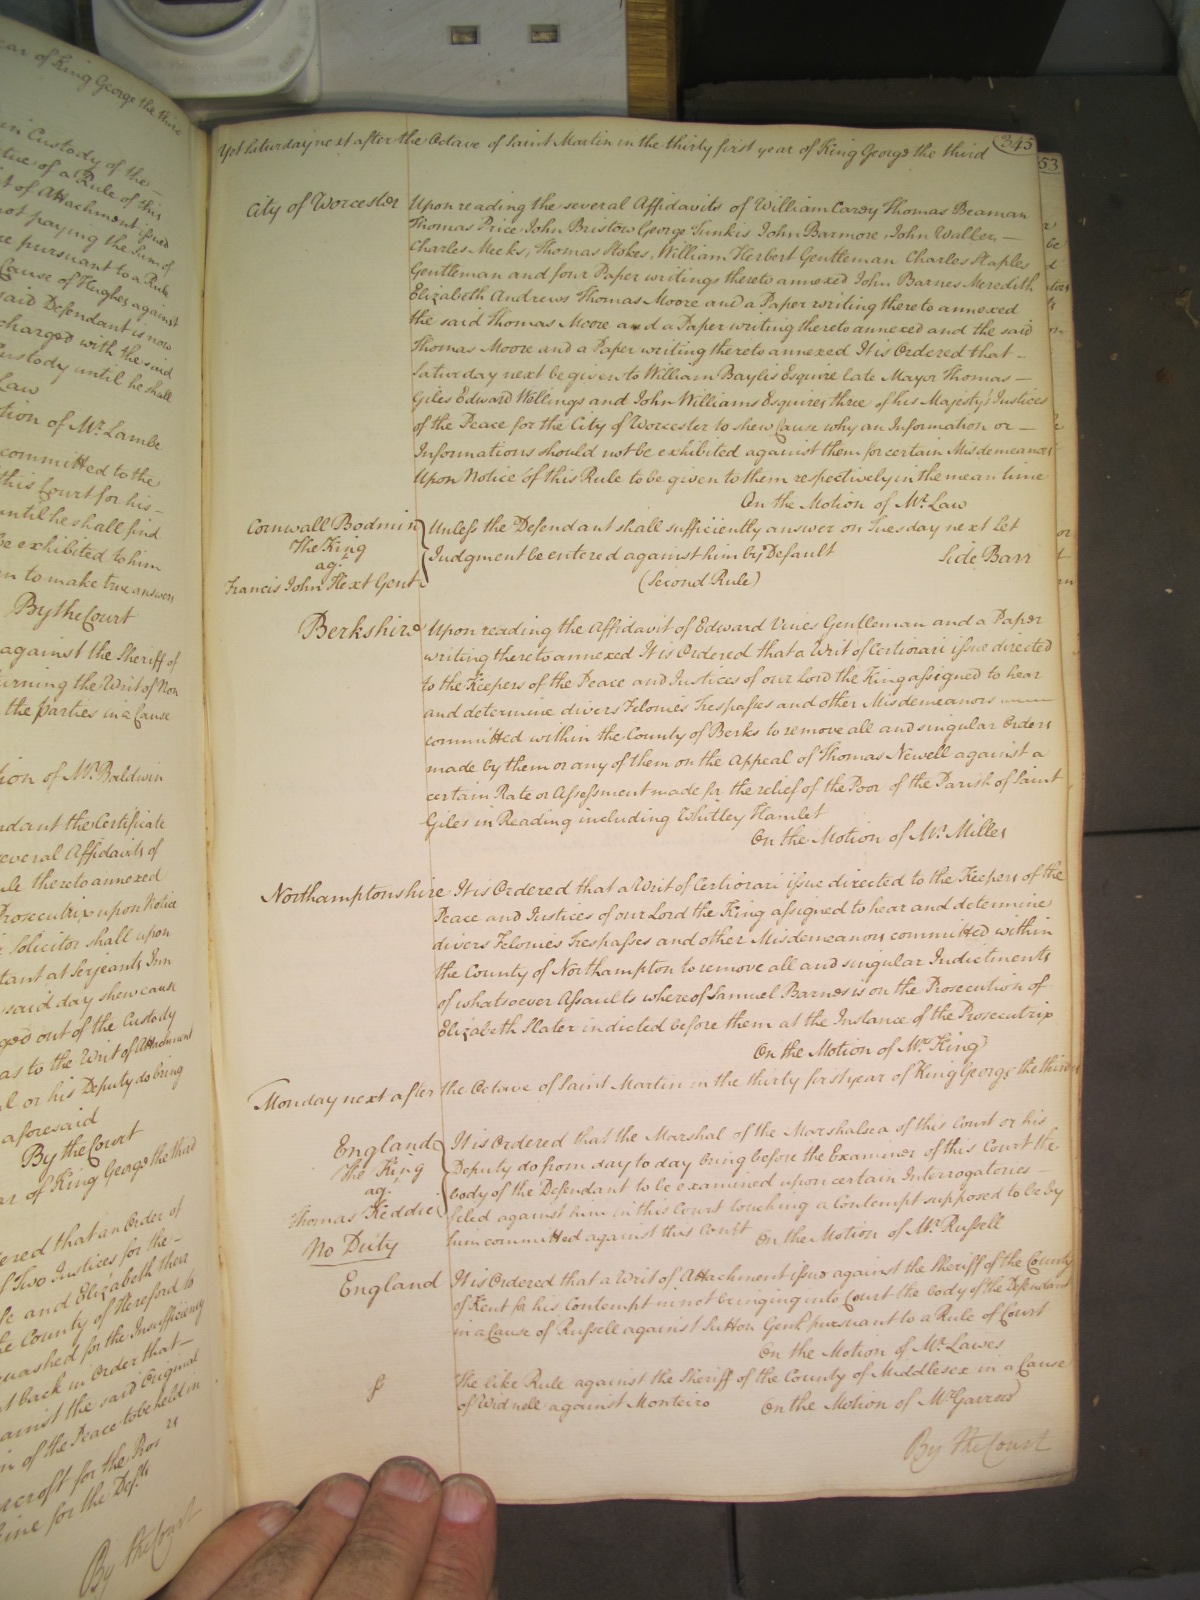 ear of King George the third
in Custody of the
tue of a Rule of this
t of Attachment issued
not paying the Sum of
e pursuant to a Rule
Cause of Hughes against
said Defendant is now
charged with the said
Custody until he shall
Law
tion of Mr. Lambe
committed to the
this Court for his
until he shall find
be exhibited to him
n to make true answers
By the Court
against the Sheriff of
urning the Writ of Non
the parties in a Cause
ion of Mr. Baldwin
ndant the Certificate
several Affidavits of
ule thereto annexed
Prosecutrix upon Notice
Solicitor shall upon
tant at Serjeants Inn
said day shew cause
ged out of the Custody
as to the Writ of Attachment
l or his Deputy do bring
aforesaid
By the Court
ar of King George the third
ered that an Order of
f Two Justices for the
fe and Elizabeth their
e County of Hereford to
quashed for the Insufficiency
t back in Order that
ainst the said Original
n of the Peace to be held in
croft for the Pros
ine for the Defts.
By the Court
345
53
Yet Saturday next after the Octave of Saint Martin in the thirty first year of King George the third
City of Worcester Upon reading the several Affidavits of William Carey Thomas Beaman
Thomas Price John Bristow George Tunkis John Barmore John Waller
Charles Meeks, Thomas Stokes, William Herbert Gentleman Charles Staples
Gentleman and four Paper writings thereto annexed John Barnes Meredith
Elizabeth Andrews Thomas Moore and a Paper writing thereto annexed
the said Thomas Moore and a Paper writing thereto annexed and the said
Thomas Moore and a Paper writing thereto annexed It is Ordered that
Saturday next be given to William Baylis Esquire late Mayor Thomas
Giles Edward Wellings and John Williams Esquires three of his Majesty's Justices
of the Peace for the City of Worcester to shew Cause why an Information or
Informations should not be exhibited against them for certain Misdemeanors
Upon Notice of this Rule to be given to them respectively in the mean time
On the Motion of Mr. Law
Cornwall Bodmin Unless the Defendant shall sufficiently answer on Tuesday next let
The King Judgment be entered against him by Default Side Barr
agt.
Francis John Hext Gent. (Second Rule)
Berkshire Upon reading the Affidavit of Edward Vines Gentleman and a Paper
writing thereto annexed It is Ordered that a Writ of Certiorari issue directed
to the Keepers of the Peace and Justices of our Lord the King assigned to hear
and determine divers Felonies Trespasses and other Misdemeanors
committed within the County of Berks to remove all and singular Orders
made by them or any of them on the Appeal of Thomas Newell against a
certain Rate or Assessment made for the relief of the Poor of the Parish of Saint
Giles in Reading including Whitley Hamlet
On the Motion of Mr. Milles
Northamptonshire It is Ordered that a Writ of Certiorari issue directed to the Keepers of the
Peace and Justices of our Lord the King assigned to hear and determine
divers Felonies Trespasses and other Misdemeanors committed within
the County of Northampton to remove all and singular Indictments
of whatsoever Assaults whereof Samuel Barnes is on the Prosecution of
Elizabeth Slater indicted before them at the Instance of the Prosecutrix
On the Motion of Mr. King
Monday next after the Octave of Saint Martin in the thirty first year of King George the third
England It is Ordered that the Marshal of the Marshalsea of this Court or his
The King Deputy do from day to day bring before the Examiner of this Court the
agt. body of the Defendant to be examined upon certain Interrogatories
Thomas Keddie filed against him in this Court touching a Contempt supposed to be by
No Duty him committed against this Court On the Motion of Mr. Russell
England It is Ordered that a Writ of Attachment issue against the Sheriff of the County
of Kent for his Contempt in not bringing into Court the body of the Defendant
in a Cause of Russell against Sutton Gent. pursuant to a Rule of Court
On the Motion of Mr. Lawes
The like Rule against the Sheriff of the County of Middlesex in a Cause
of Widnell against Monteiro On the Motion of Mr. Garrow
By the Court